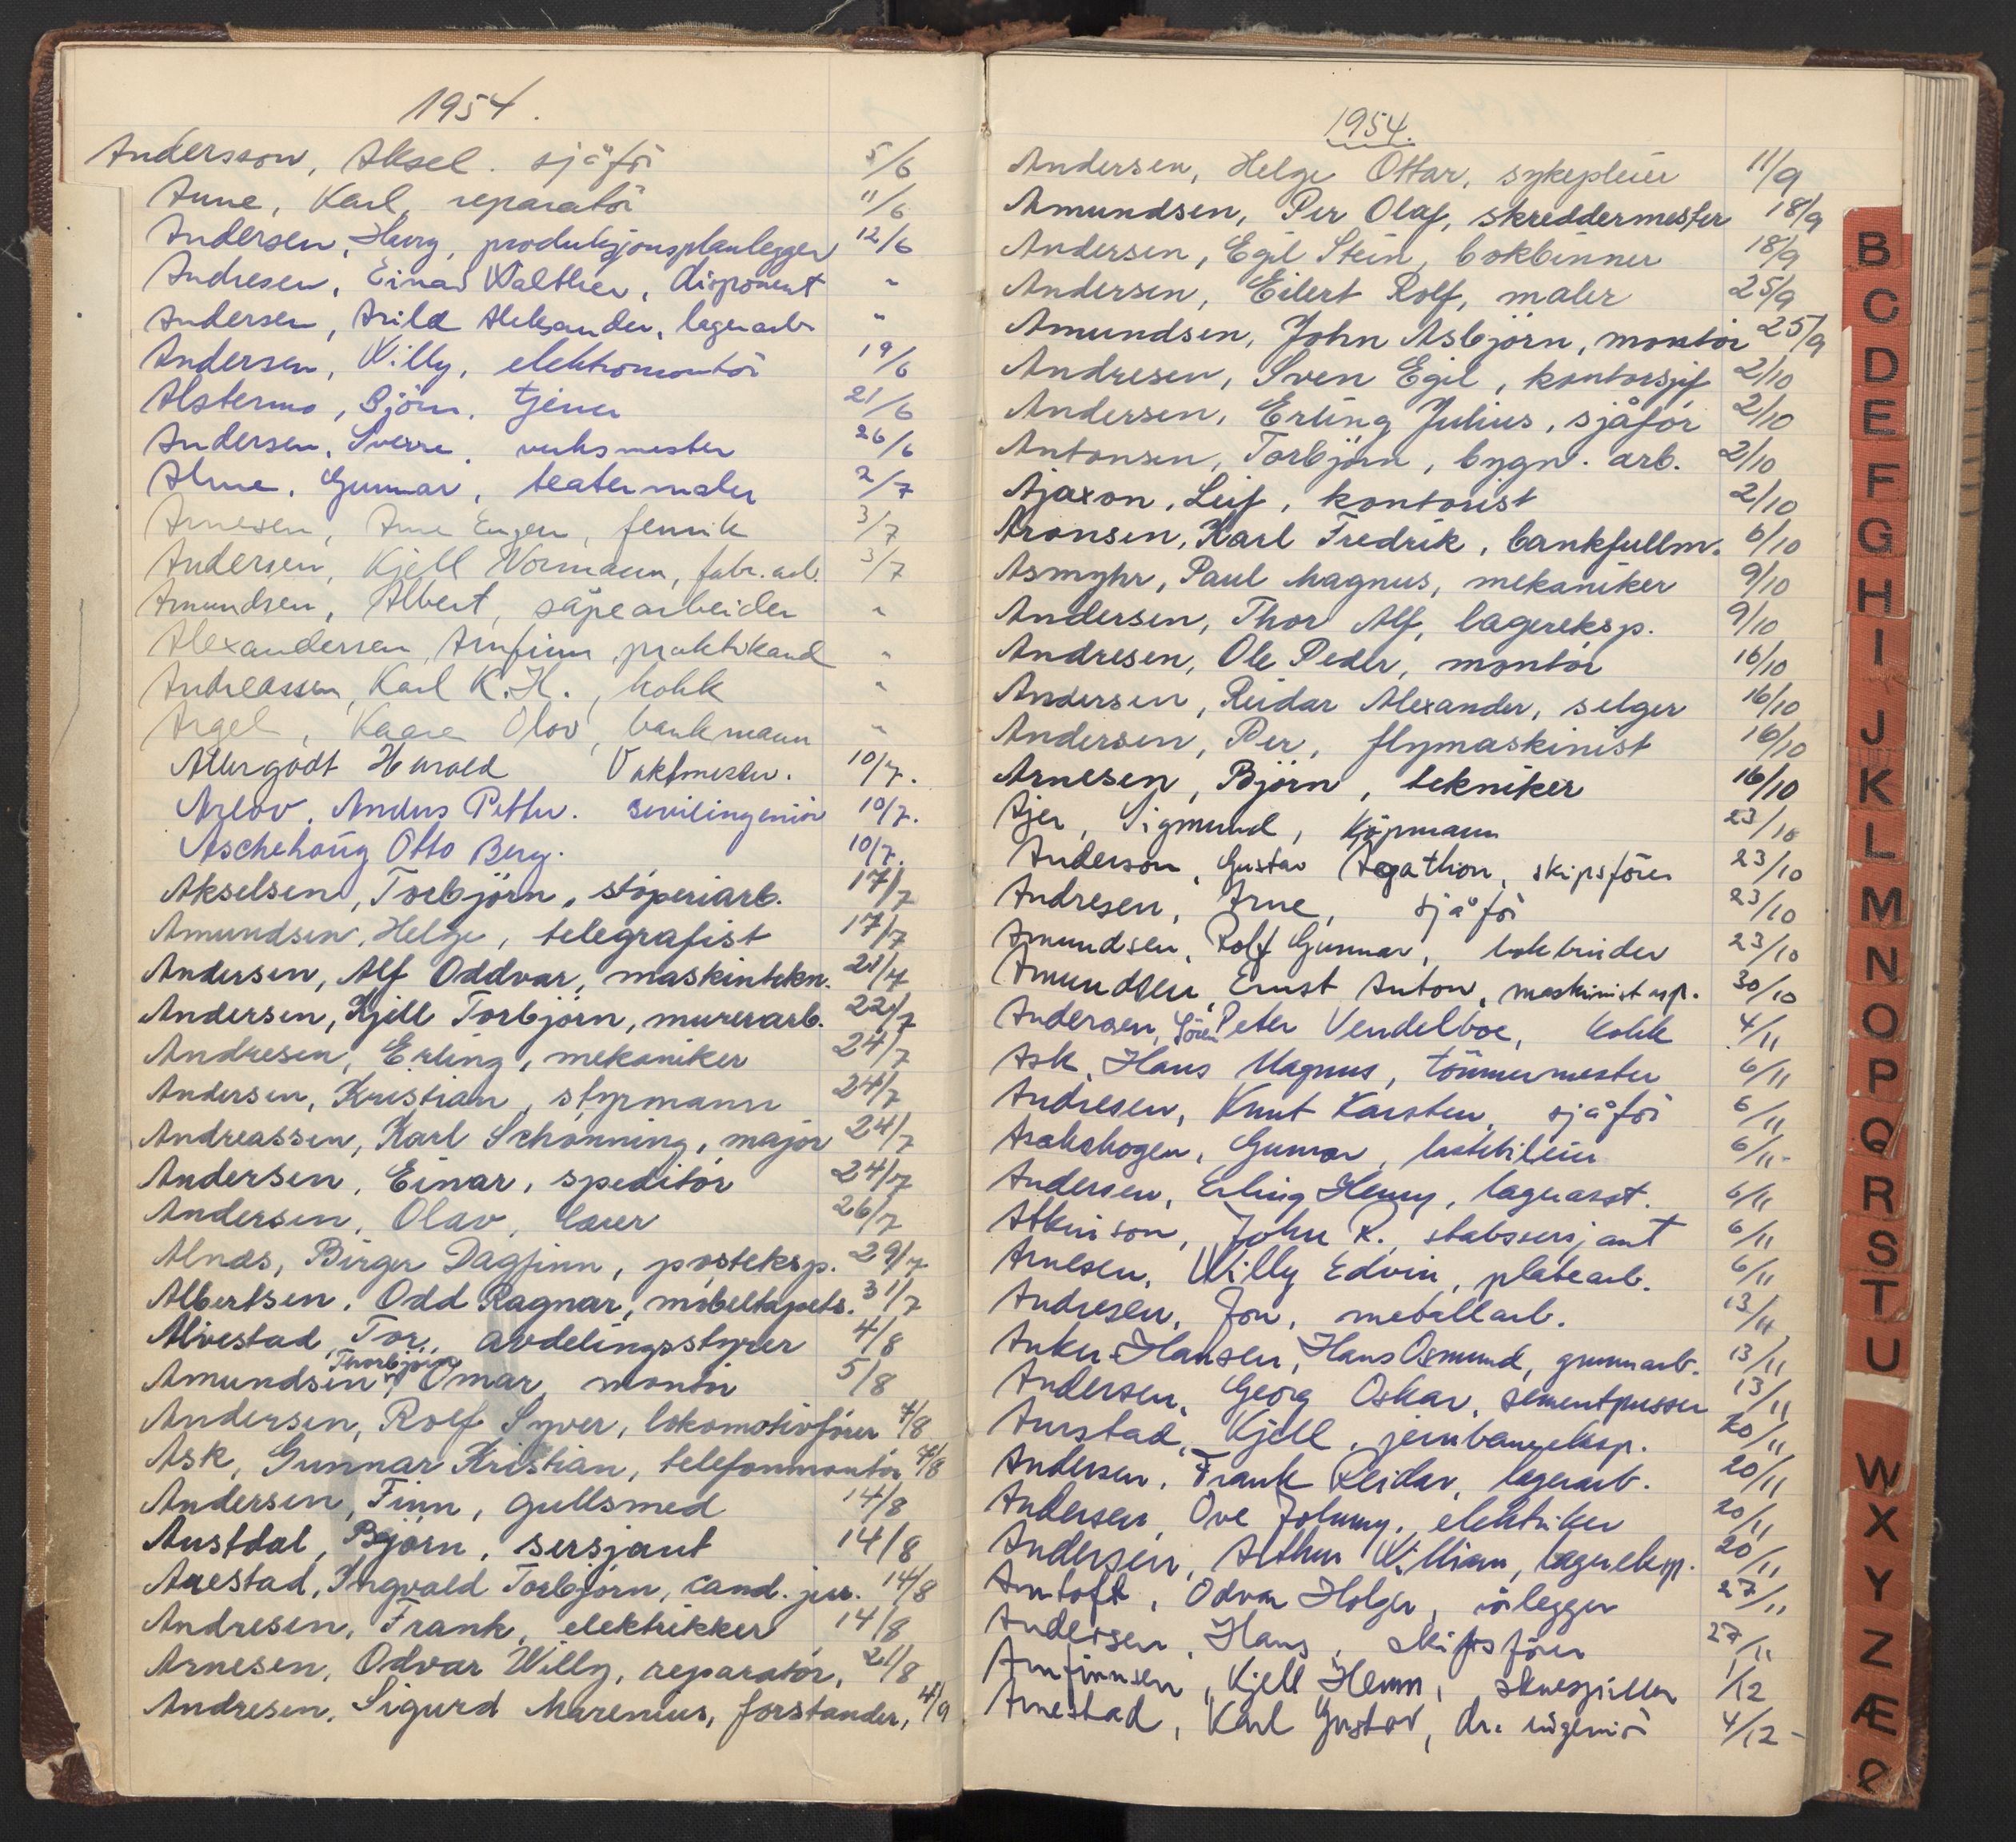 1954.
Andersson, Aksel. sjåför 5/6
Aune, Karl, reparatör 11/6
Andersen, Harry, produksjonsplanlegger 12/6
Andresen, Einar Walther, disponent "
Andersen, Arild Aleksander, lagerarb. "
Andersen, Willy, elektromontör 19/6
Alstermo, Björn, tjener 21/6
Andersen, Sverre, verksmester 26/6
Alme, Gunnar, teatermaler 2/7
Arnesen, Arne Eugen, fenrik 3/7
Andersen, Kjell Normann, fabr. arb. 3/7
Amundsen, Albert, såpearbeider "
Alexandersen, Arnfinn, praktikand "
Andreassen, Karl K. H., kokk "
Argel, Kaare Olov, bankmann "
Allergodt Harald Vaktmester. 10/7.
Arlov, Anders Petter. sivilingeniör 10/7.
Aschehoug Otto Berg. 10/7.
Akselsen, Torbjörn, stöperiarb. 17/7
Amundsen, Helge, telegrafist 17/7
Andersen, Alf Oddvar, maskintekn. 21/7
Andersen, Kjell Torbjörn, murerarb. 22/7
Andresen, Erling, mekaniker 24/7
Andersen, Kristian, styrmann 24/7
Andreassen, Karl Schönning, major 24/7
Andersen, Einar, speditör 24/7
Andersen, Olav, lærer 26/7
Alnæs, Birger Dagfinn, posteksp. 29/7
Albertsen, Odd Ragnar, möbeltapets. 31/7
Alvestad, Tor, avdelingsstyrer 4/8
Amundsen, Thorbjörn Omar, montör 5/8
Andersen, Rolf Syver, lokomotivförer 7/8
Ask, Gunnar Kristian, telefonmontör 7/8
Andersen, Finn, gullsmed 14/8
Austdal, Björn, sersjant 14/8
Aarestad, Ingvald Torbjörn, cand. jur. 14/8
Andresen, Frank, elektrikker 14/8
Arnesen, Odvar Willy, reparatör, 21/8
Andresen, Sigurd Marenius, forstander, 4/9
1954.
Andersen, Helge Ottar, sykepleier 11/9
Amundsen, Per Olaf, skreddermester 18/9
Andersen, Egil Stein, bokbinner 18/9
Andersen, Eilert Rolf, maler 25/9
Amundsen, John Asbjörn, montör 25/9
Andresen, Sven Egil, kontorsjef 2/10
Andersen, Erling Julius, sjåför 2/10
Antonsen, Torbjörn, bygn. arb. 2/10
Ajaxon, Leif, kontorist 2/10
Aronsen, Karl Fredrik, bankfullm. 6/10
Asmyhr, Paul Magnus, mekaniker 9/10
Andersen, Thor Alf, lagereksp. 9/10
Andresen, Ole Peder, montör 16/10
Andersen, Reidar Alexander, selger 16/10
Andersen, Per, flymaskinist 16/10
Arnesen, Björn, tekniker 16/10
Ajer, Sigmund, Kjöpmann 23/10
Anderson, Gustav Agathon, skipsförer 23/10
Andresen, Arne, sjåför 23/10
Amundsen, Rolf Gunnar, bokbinder 23/10
Amundsen, Ernst Anton, maskinist asp. 30/10
Andersen, Sören Peter Vendelboe, kokk 4/11
Ask, Hans Magnus, tömmermester 6/11
Andresen, Knut Karsten, sjåför 6/11
Aschehogen, Gunnar, lastebileier 6/11-
Andersen, Erling Henry, lagerasst. 6/11
Atkinson, John R., stabssersjant 6/11
Arnesen, Willy Edvin, platearb. 6/11
Andresen, Jon, metallarb. 13/11
Anker-Hansen, Hans Osmund, grunnarb. 13/11
Andersen, Georg Oskar, sementpusser 13/11
Aurstad, Kjell, jernbaneeksp. 20/11
Andersen, Frank Reidar, lagerarb. 20/11
Andersen, Ove Johnny, elektriker 20/11
Andersen, Arthur William, lagereksp. 20/11
Amtoft, Odvar Holger, rörlegger 27/11
Andersen, Hans, skipsförer 27/11
Arnfinnsen, Kjell Henm, skuespiller 1/12
Arnestad, Karl Gustav, dr. ingeniör 4/12-
B
C
D
E
F
G
H
I
J
K
L
M
N
O
P
Q
R
S
T
U
W
X
Y
Z
Æ